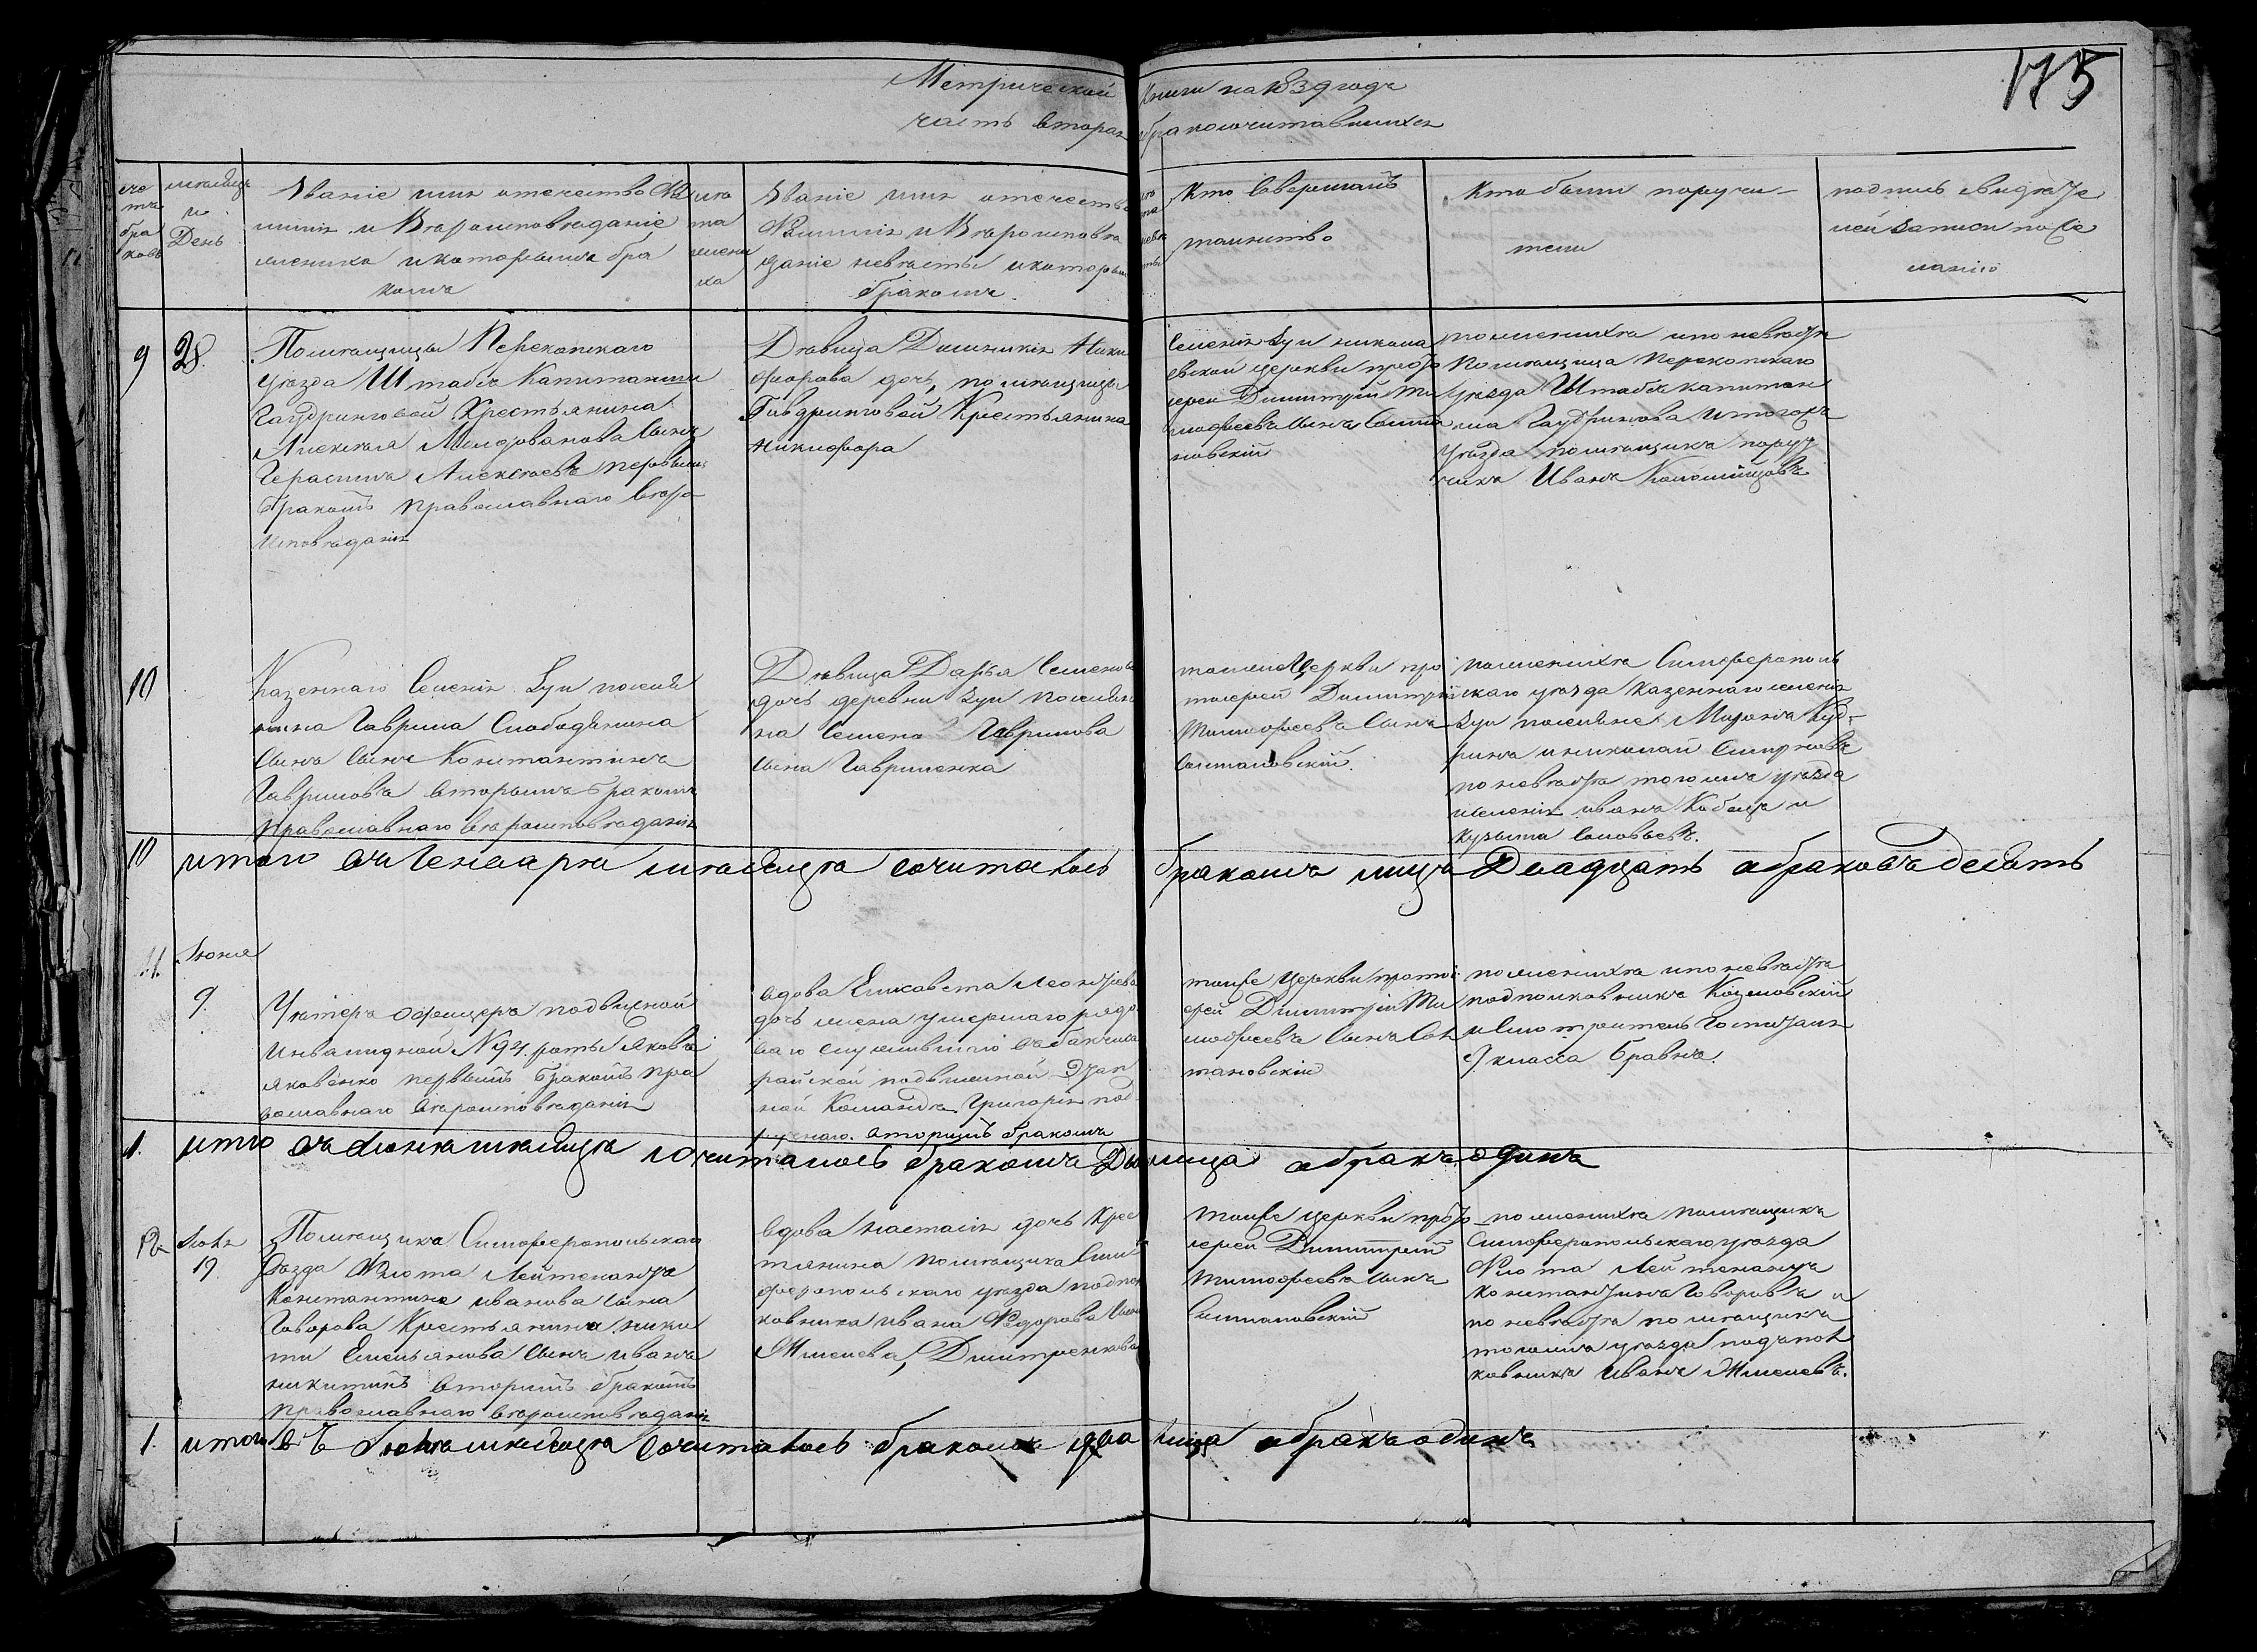 175
Метрической Книги на 1839 годъ
часть вторая бракосочитавшихся
сче
тъ
бра
ковъ
месяцъ
и
День
Званіе имя отечество Фа
милія и Вероисповеданіе
жениха и которымъ бра
комъ
лета
жени
ха
Званіе имя отечество
Фамилія и Вероисповеда
даніе невесты и которым
бракомъ
Кто Совершалъ
таинство
Кто были поручи-
тели
подпись свидете
лей записи по же
ланію
9
28.
Помещицы Перекопскаго
уезда Штабсъ Капитанши
Гаудринговой Крестьянина
Алексея Молдованова сынъ
Герасимъ Алексеевъ первымъ
бракомъ православнаго веро
исповеданія
Девица Домникія Ники
форова дочь, помещицы
Гавдринговой Крестьянина
Никифора
Селенія Зуи Никола
евской церкви прото
іерей Димитрій Ти
мофеевъ сынъ Солта
новскій
по женихе и по невесте
Помещица Перекопскаго
уезда Штабсъ капитан
ша Гаудрингова и тогожъ
уезда помещикъ пору
чикъ Иванъ Коломійцовъ
10
Казеннаго Селенія Зуи поселя
нина Гаврила Слободянина
сынъ Константинъ
Гавриловъ вторымъ бракомъ
православнаго вероисповеданія
Девица Дарья Семенова
дочь деревни Зуи поселяни
на Семена Гаврилова
сына Гавриленка
тойже Церкви про
тоіерей Димитрій
Тимофеевъ сынъ
Солтановскій.
по женихе Симферополь
скаго уезда казеннаго селенія
Зуи поселяне Миронъ Куд-
ринъ и николай Смирновъ
по невесте того жъ уезда
и селенія иванъ Кобецъ и
Кузьма Соловьевъ.
10 итого въ Генваре месяце сочиталось бракомъ лицъ Двадцать а браковъ десять
11.
Июня
9.
Унтеръ Офицеръ подвижной
Инвалидной № 94. роты Яковъ
Яковенко первымъ бракомъ пра
вославнаго вероисповеданія
вдова Елисавета Леонтіева
дочь жена умершаго рядо
ваго служившаго въ бахчиса
райской подвижной Этап
ной Команде Григорія
вторымъ бракомъ
тойже церкви протоі
ерей Димитрій Ти
мофеевъ сынъ Сол
тановскій
по женихе и по невесте
подполковникъ Козловскій
и Смотритель Госпиталя
9 класса Бравинъ.
1. итого въ Июне месяце сочиталось бракомъ Два лица а бракъ одинъ
12
Июля
19.
Помещика Симферопольскаго
уезда Флота Лейтенанта
Константина иванова сына
Говорова Крестьянина ники
ты Емельянова сынъ иванъ
никитинъ вторымъ бракомъ
православнаго вероисповеданія
вдова Настасія дочь Крес
тянина помещика Сим
феропольскаго уезда подпол
ковника ивана Федорова сына
Жменева, Дмитренкова
тойже церкви прото
іерей Димитрій
Тимофеевъ сынъ
Солтановскій
по женихе помещикъ
Симферопольскаго уезда
Флота Лейтенантъ
Константинъ Говоровъ и
по невесте помещикъ
того жъ уезда подпол
ковникъ Иванъ Жменевъ.
1. итого въ Июле месяце Сочиталось бракомъ два лица а бракъ одинъ